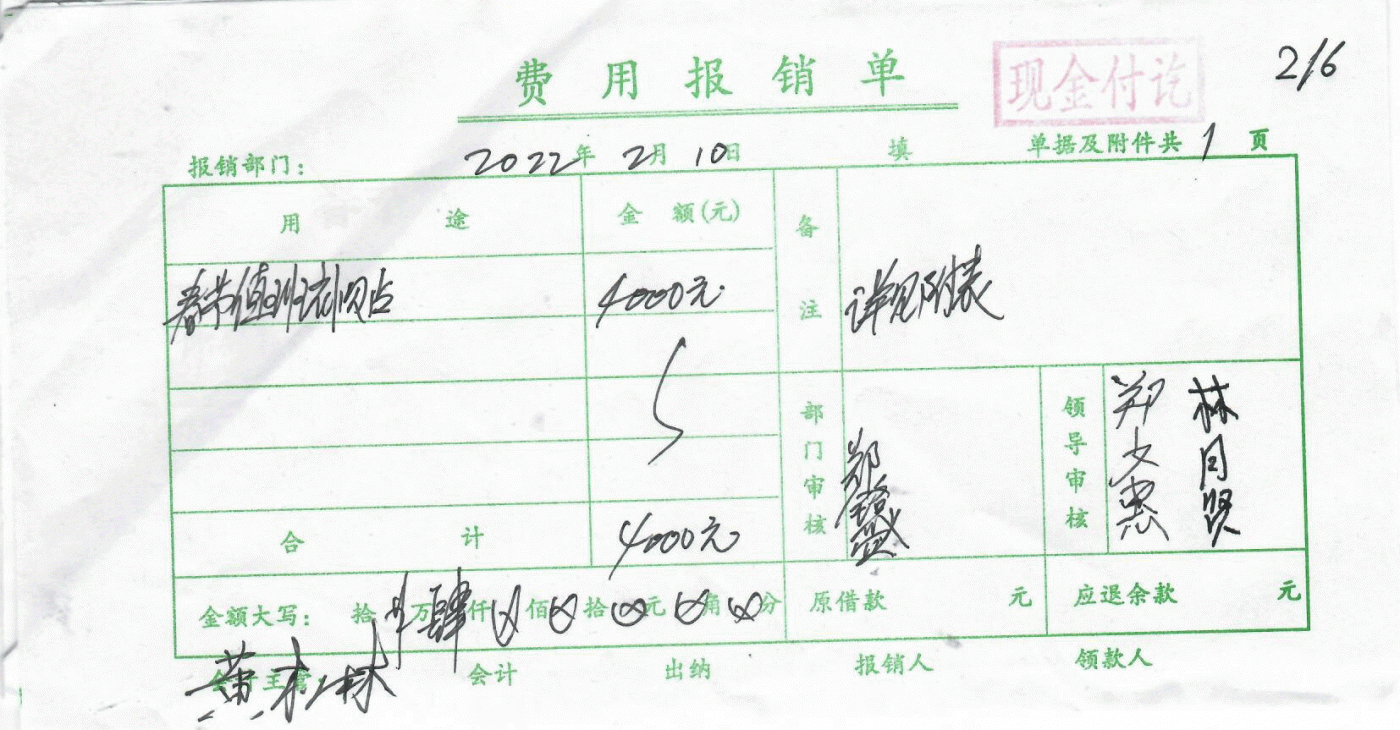 费用报销单
现金付讫
2/6
报销部门： 2022年 2月 10日 填 单据及附件共 1 页
用途 金额(元) 备注
春节值班 4000元 详见附表
合计 4000元
部门审核 郑
领导审核 郑文惠 林月贤
金额大写： 拾 万 肆仟 佰 拾 元 角 分 原借款 元 应退余款 元
会计主管： 会计 出纳 报销人 领款人
黄 林